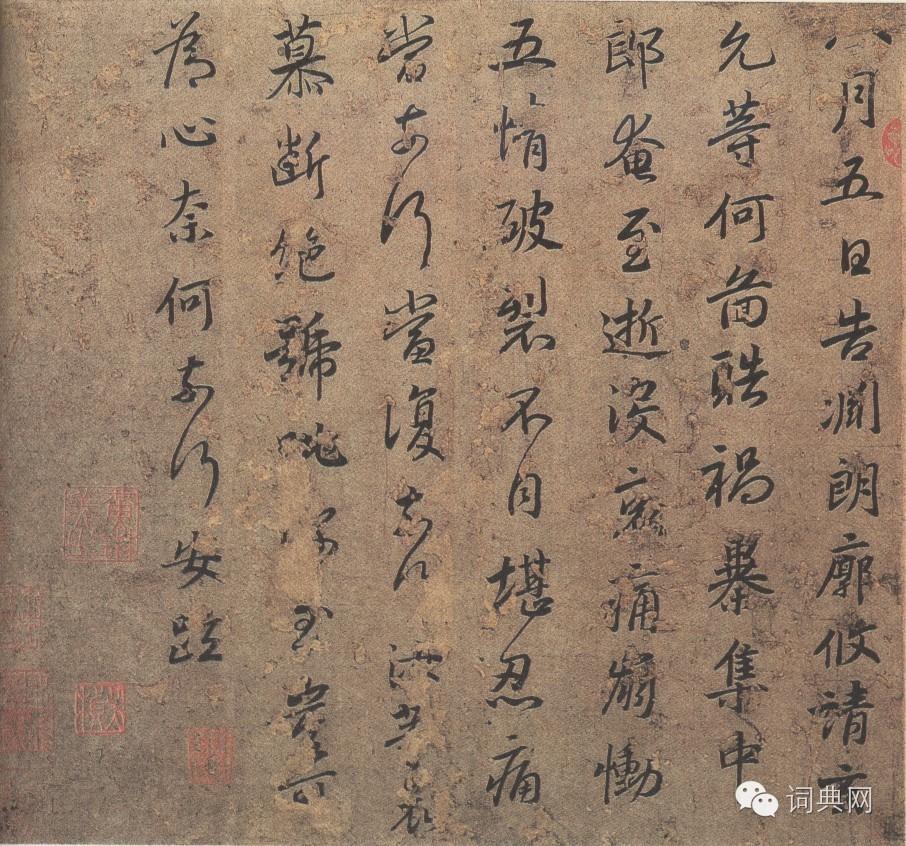 八月五日告淵朗廓攸靖玄
允等何啚酷禍暴集中
郎奄至逝没哀痛崩慟
五情破裂不自堪忍痛
當奈何當復奈何汝等哀
慕斷絶號咷深至豈可
為心奈何奈何安疏
词典网